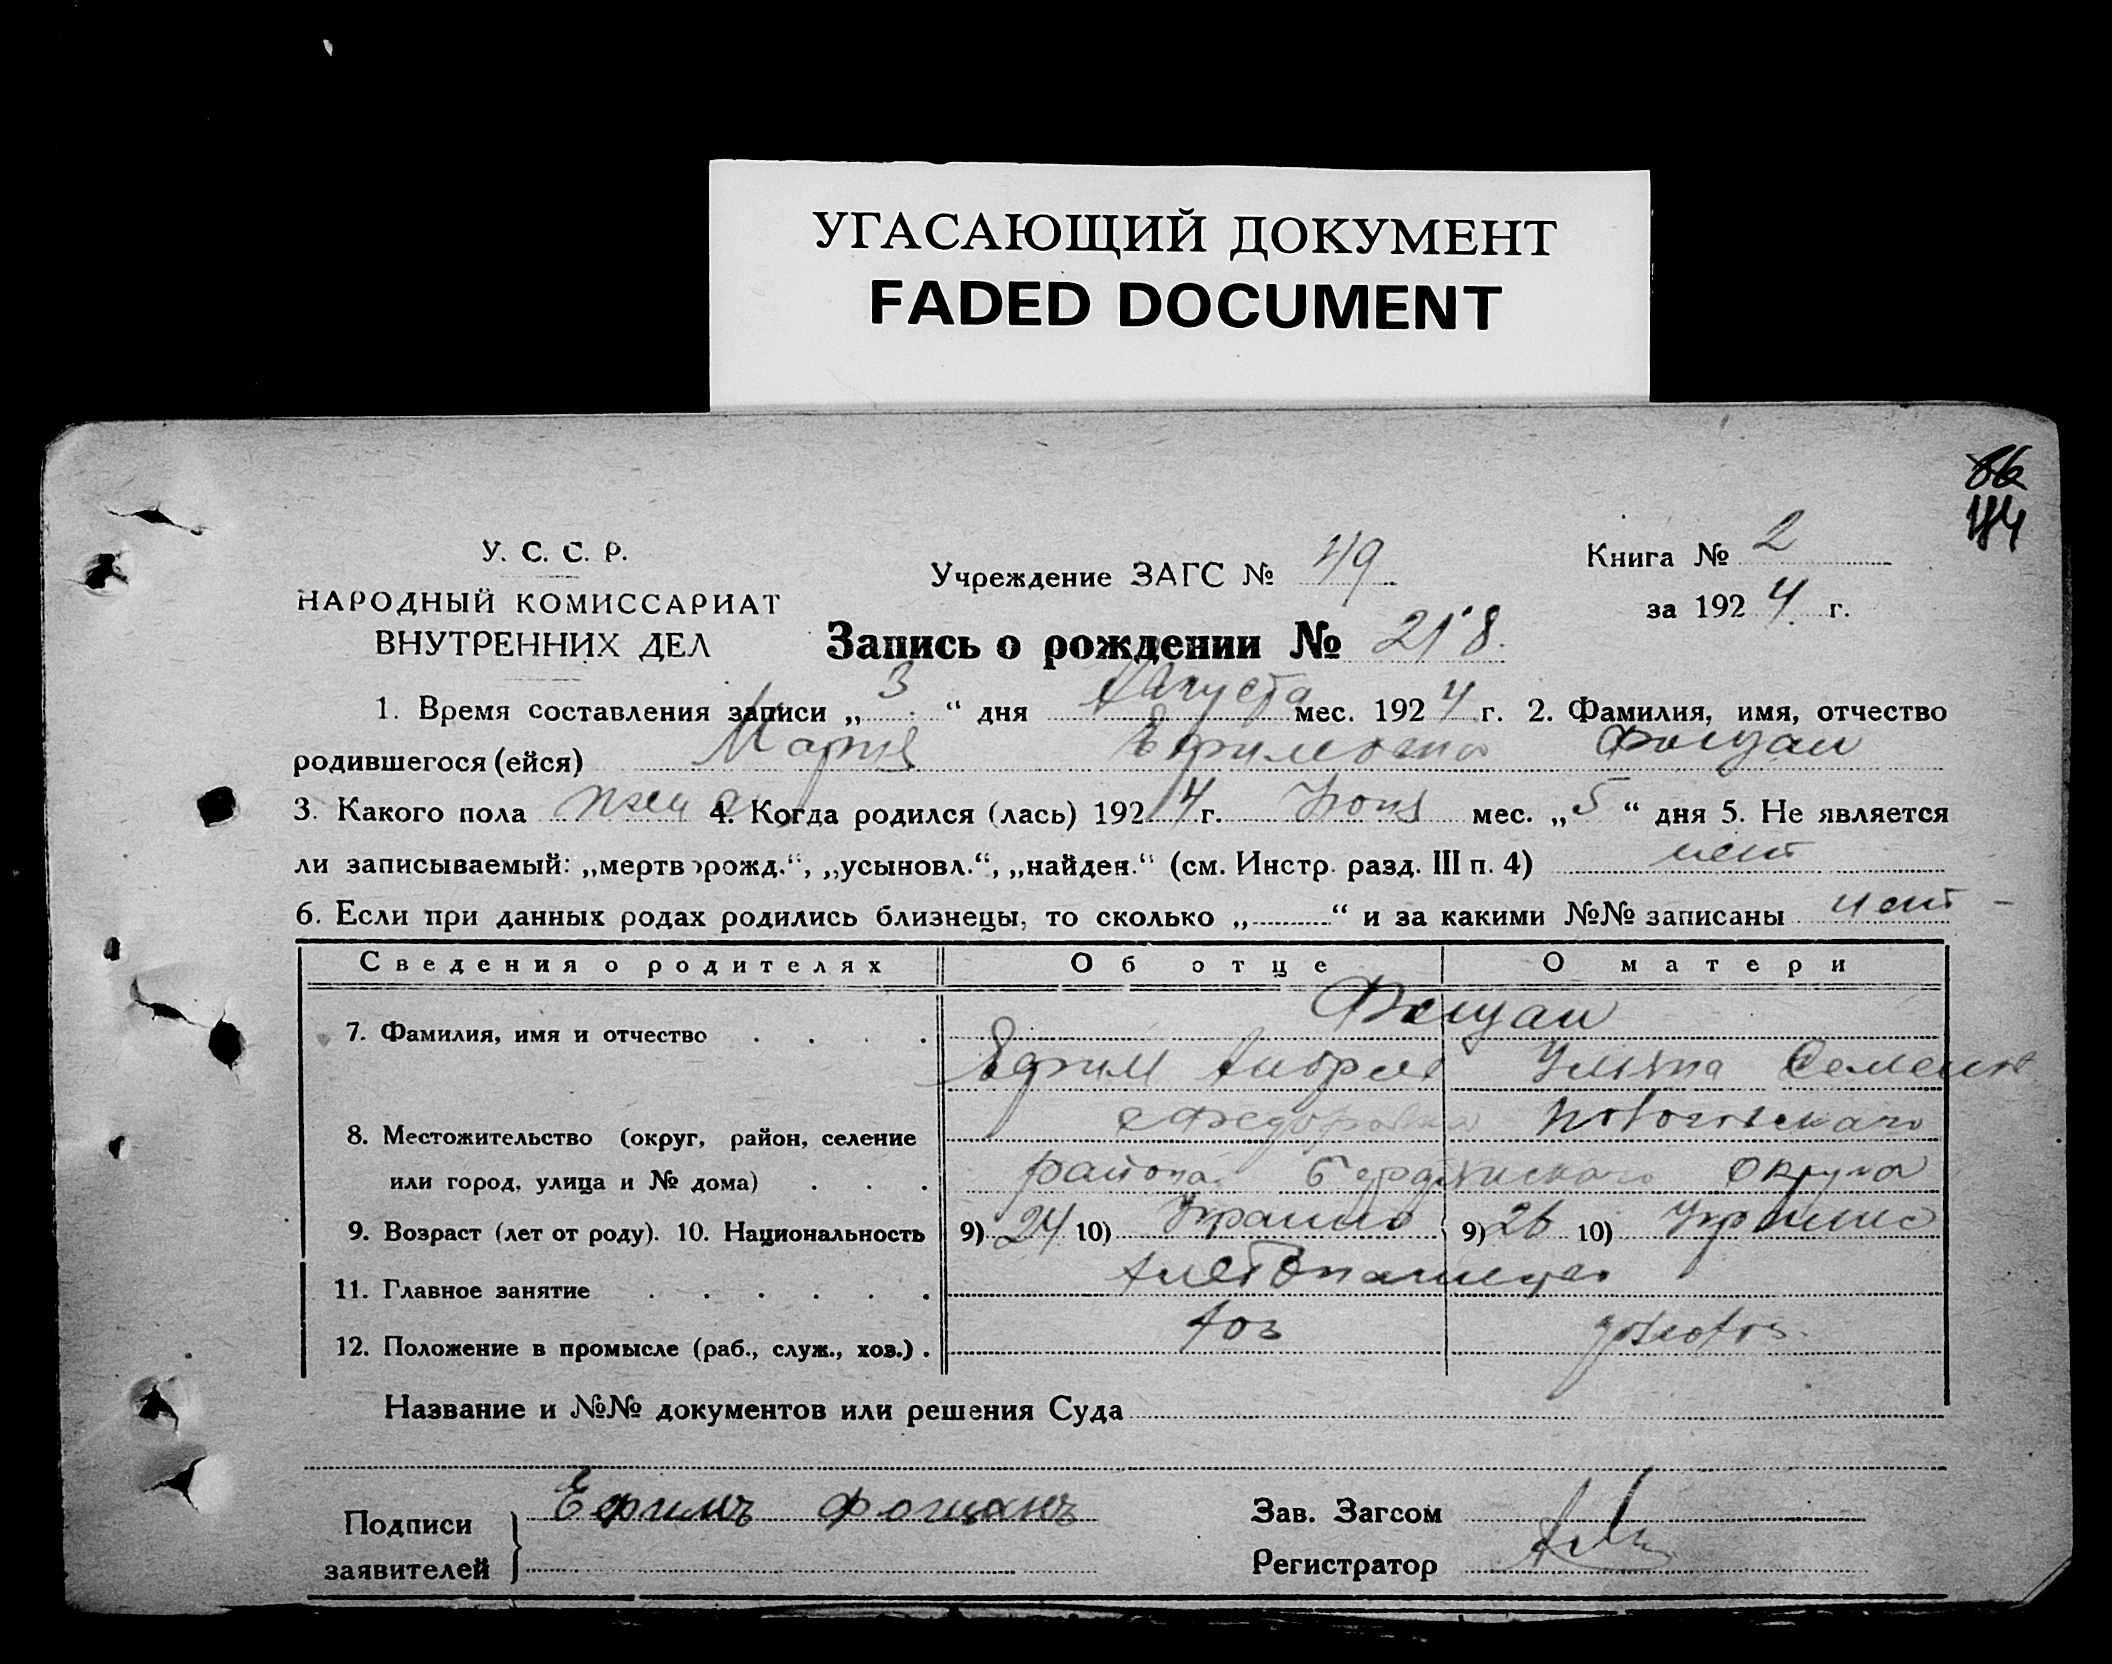 УГАСАЮЩИЙ ДОКУМЕНТ
FADED DOCUMENT
86
44
У. С. С. Р.
НАРОДНЫЙ КОМИССАРИАТ
ВНУТРЕННИХ ДЕЛ
Учреждение ЗАГС № 49
Книга № 2
за 1924 г.
Запись о рождении № 218.
1. Время составления записи „3“ дня Августа мес. 1924 г. 2. Фамилия, имя, отчество
родившегося (ейся) Мария Ефимовна Фощан
3. Какого пола жен 4. Когда родился (лась) 1924 г. Июня мес. „5“ дня 5. Не является
ли записываемый: „мертворожд.“, „усыновл.“, „найден.“ (см. Инстр. разд. III п. 4) нет
6. Если при данных родах родились близнецы, то сколько „ “ и за какими №№ записаны нет -
Сведения о родителях Об отце О матери
7. Фамилия, имя и отчество . . . . Фощан
Ефим Андрее Семено
8. Местожительство (округ, район, селение с Федоровка
или город, улица и № дома) . . . района Бердянского Округа
9. Возраст (лет от роду). 10. Национальность 9) 24 10) Украине 9) 26 10) Украине
11. Главное занятие . . . . . . хлебопашец
12. Положение в промысле (раб., служ., хоз.) . хоз
Название и №№ документов или решения Суда
Подписи заявителей } Ефимъ Фощанъ
Зав. Загсом
Регистратор